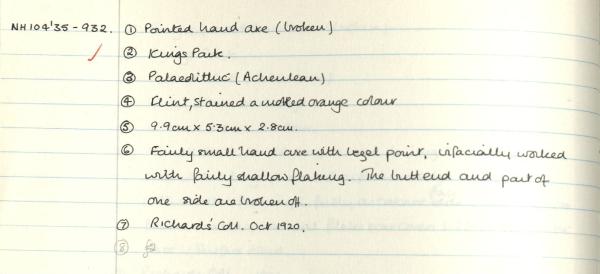 NH104'35-932. ① Pointed hand axe (broken)
② Kings Park.
③ Palaeolithic (Acheulean)
④ Flint, stained a mottled orange colour
⑤ 9.9cm x 5.3cm x 2.8cm.
⑥ Fairly small hand axe with bezel point, bifacially worked
with fairly shallow flaking. The butt end and part of
one side are broken off.
⑦ Richards' Coll. Oct 1920.
⑧